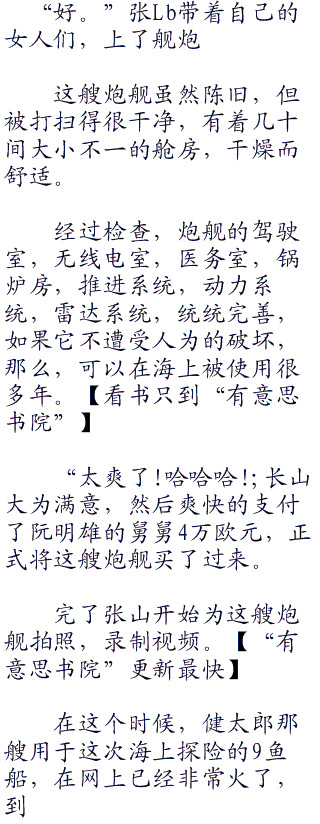 “好。”张Lb带着自己的
女人们，上了舰炮
这艘炮舰虽然陈旧，但
被打扫得很干净，有着几十
间大小不一的舱房，干燥而
舒适。
经过检查，炮舰的驾驶
室，无线电室，医务室，锅
炉房，推进系统，动力系
统，雷达系统，统统完善，
如果它不遭受人为的破坏，
那么，可以在海上被使用很
多年。【看书只到“有意思
书院”】
“太爽了!哈哈哈!;长山
大为满意，然后爽快的支付
了阮明雄的舅舅4万欧元，正
式将这艘炮舰买了过来。
完了张山开始为这艘炮
舰拍照，录制视频。【“有
意思书院”更新最快】
在这个时候，健太郎那
艘用于这次海上探险的9鱼
船，在网上已经非常火了，
到